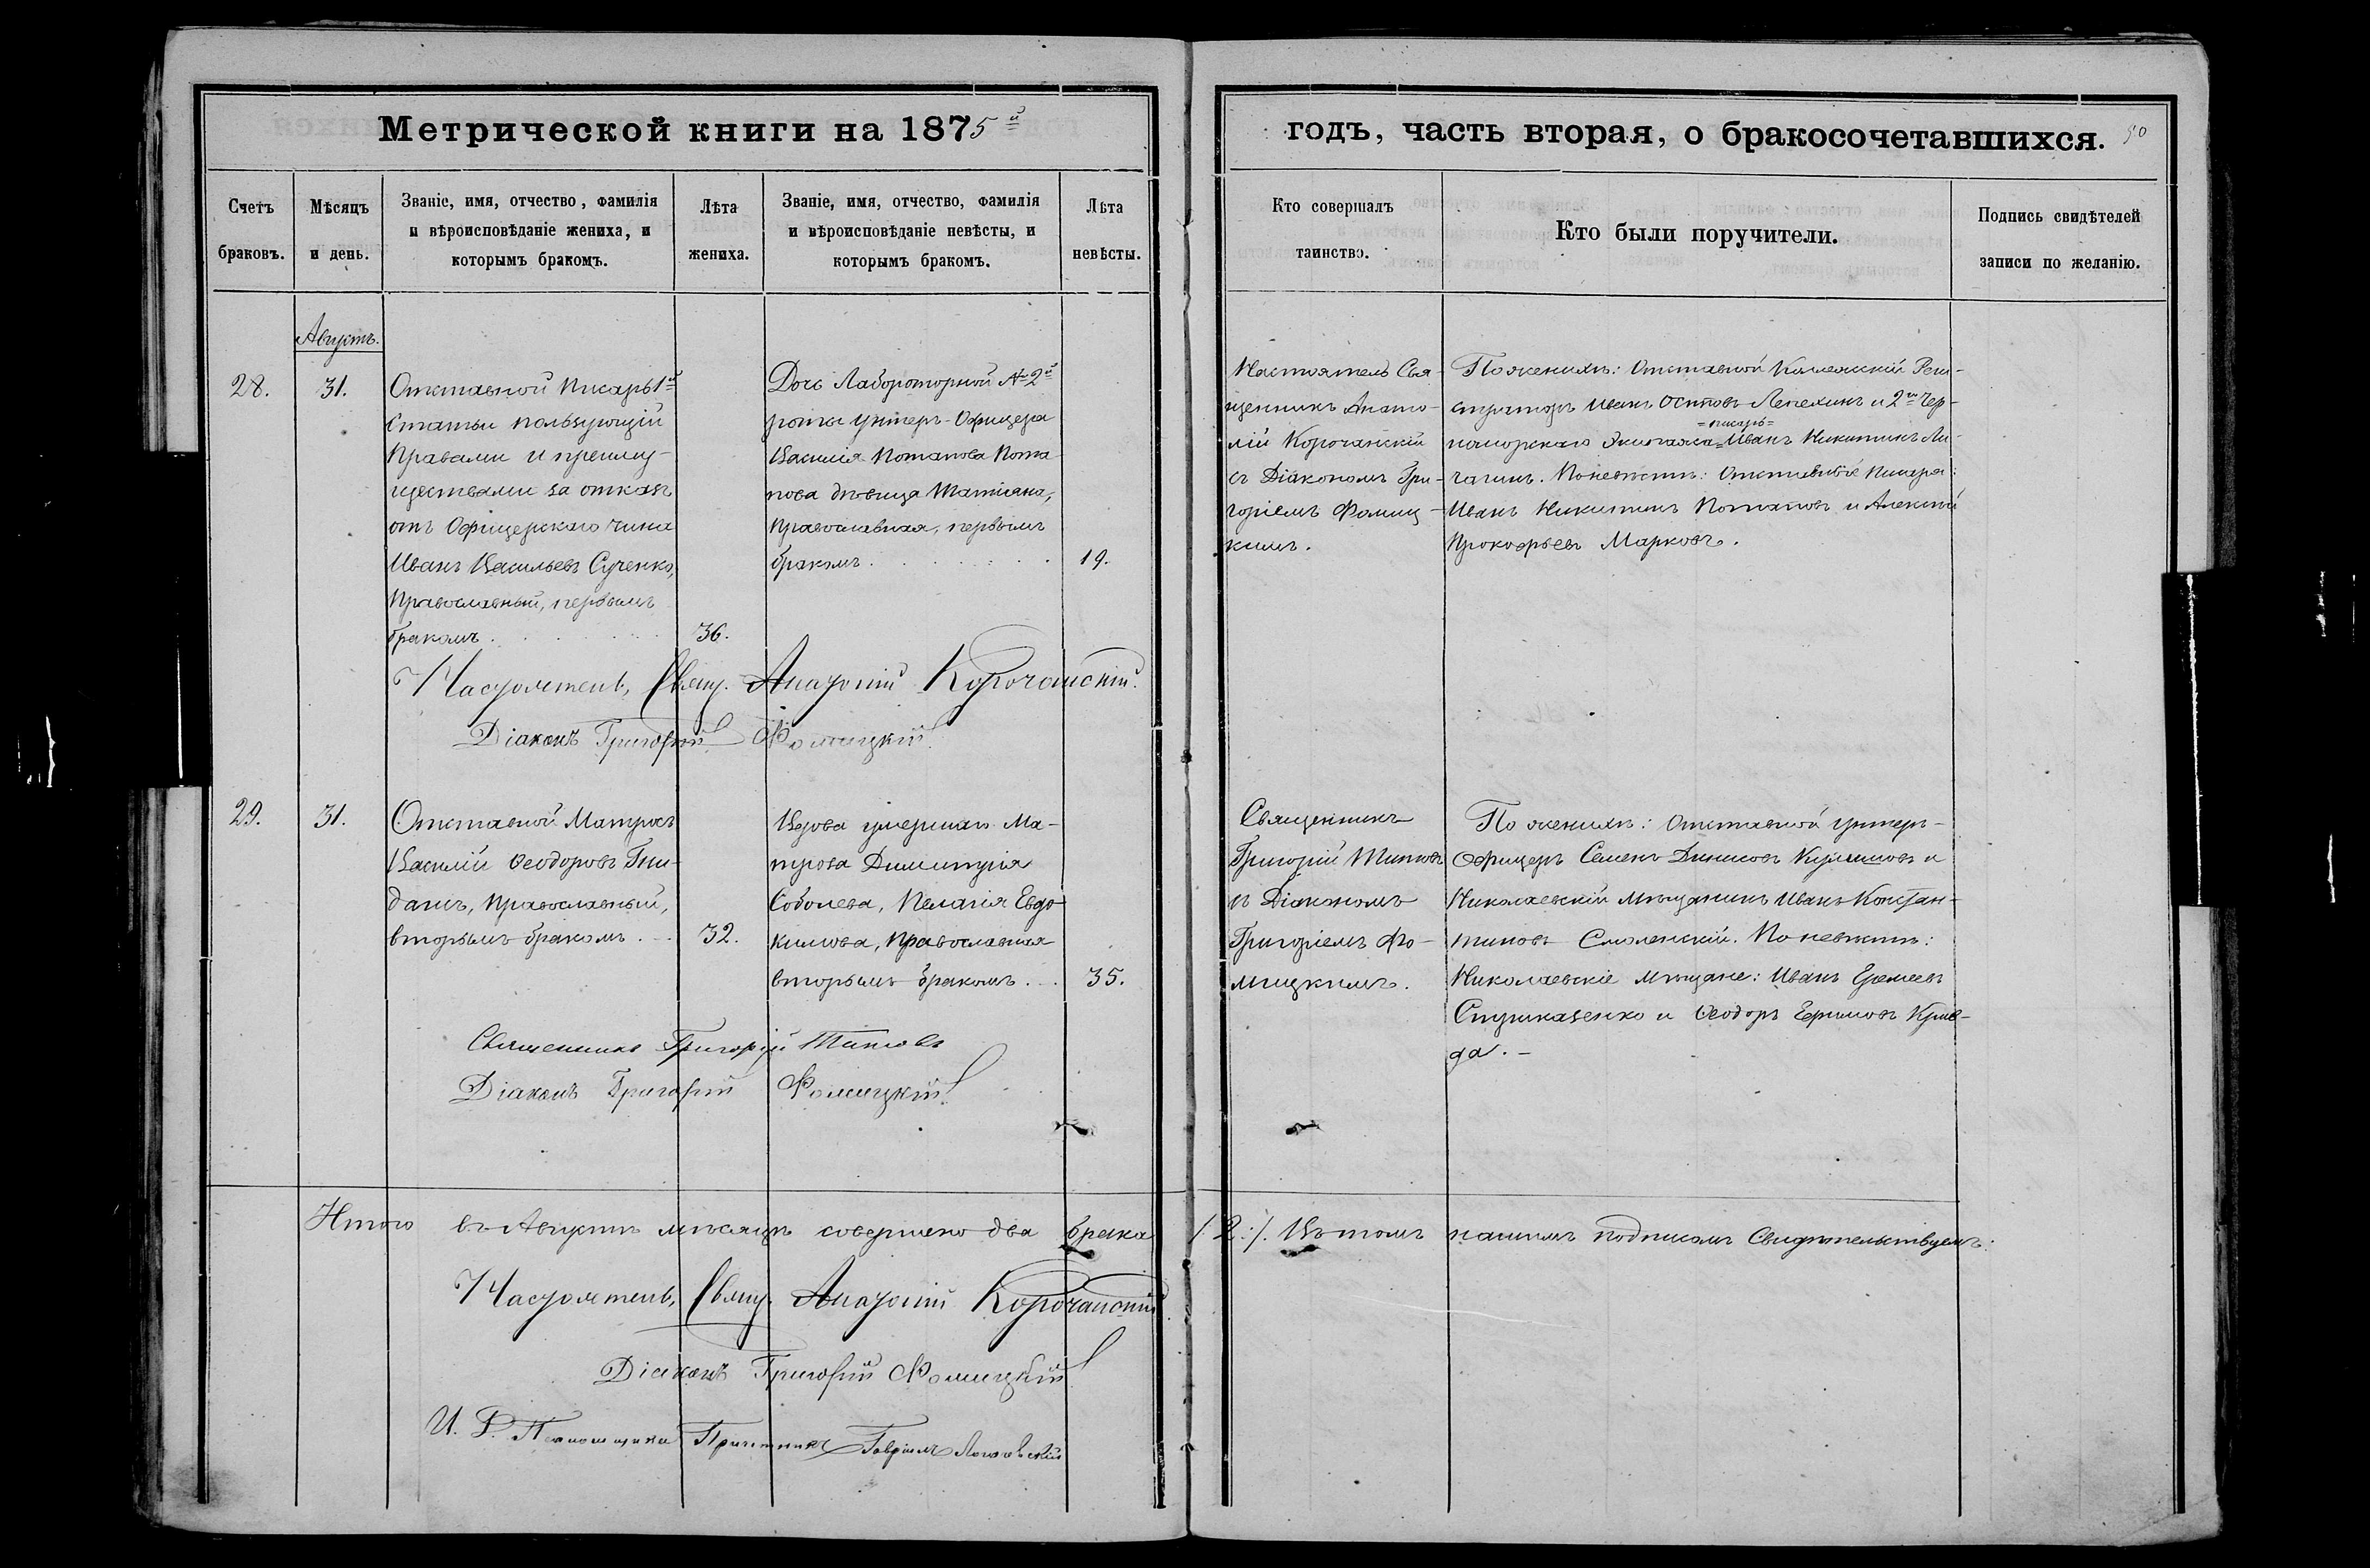 Метрической книги на 1875й
годъ, часть вторая, о бракосочетавшихся. 50
Счетъ
браковъ.
Мѣсяцъ
и день.
Званіе, имя, отчество, фамилія
и вѣроисповѣданіе жениха, и
которымъ бракомъ.
Лѣта
жениха.
Званіе, имя, отчество, фамилія
и вѣроисповѣданіе невѣсты, и
которымъ бракомъ.
Лѣта
невѣсты.
Кто совершалъ
таинство.
Кто были поручители.
Подпись свидѣтелей
записи по желанію.
Августъ.
28.
31.
Отставной Писарь 1й
Статьи пользующій
Правами и преиму-
ществами за отказъ
отъ Офицерскаго чина
Иванъ Васильевъ Сученко,
Православный, первымъ
бракомъ.
36.
Дочь Лабораторной № 2й
роты Унтеръ-Офицера
Василія Потапова Пота
пова дѣвица Татіана,
Православная, первымъ
бракомъ.
19.
Настоятель Свя-
щенникъ Анато-
лій Корочанскій
съ Діакономъ Гри-
горіемъ Фомиц-
кимъ.
По женихѣ: Отставной Коллежскій Реги-
страторъ Иванъ Осиповъ Лепехинъ и 2го Чер-
=писарь=
номорскаго Экипажа Иванъ Никитинъ Ли-
чагинъ. По невѣстѣ: Отставные Писаря:
Иванъ Никитинъ Потаповъ и Алексѣй
Прокофьевъ Марковъ.
Настоятель, Свящ. Анатолій Корочанскій.
Діаконъ Григорій Фомицкій
29.
31.
Отставной Матросъ
Василій Ѳеодоровъ Гни-
данъ, Православный,
вторымъ бракомъ.
32.
Вдова умершаго Ма-
троса Димитрія
Соболева, Пелагія Евдо-
кимова, Православная
вторымъ бракомъ.
35.
Священникъ
Григорій Титовъ
съ Діакономъ
Григоріемъ Фо-
мицкимъ.
По женихѣ: Отставной Унтеръ-
Офицеръ Семенъ Денисовъ и
Николаевскій Мѣщанинъ Иванъ Констан-
тиновъ Смоленскій. По невѣстѣ:
Николаевскіе Мѣщане: Иванъ Еремеевъ
Стукаленко и Ѳеодоръ Ефимовъ Крив-
да.
Священникъ Григорій Титовъ
Діаконъ Григорій Фомицкій
Итого въ Августѣ мѣсяцѣ совершено два брака /:2:/. Въ томъ нашимъ подписомъ Свидѣтельствуемъ:
Настоятель, Свящ. Анатолій Корочанскій
Діаконъ Григорій Фомицкій
И. Д. Причетникъ Гавріилъ